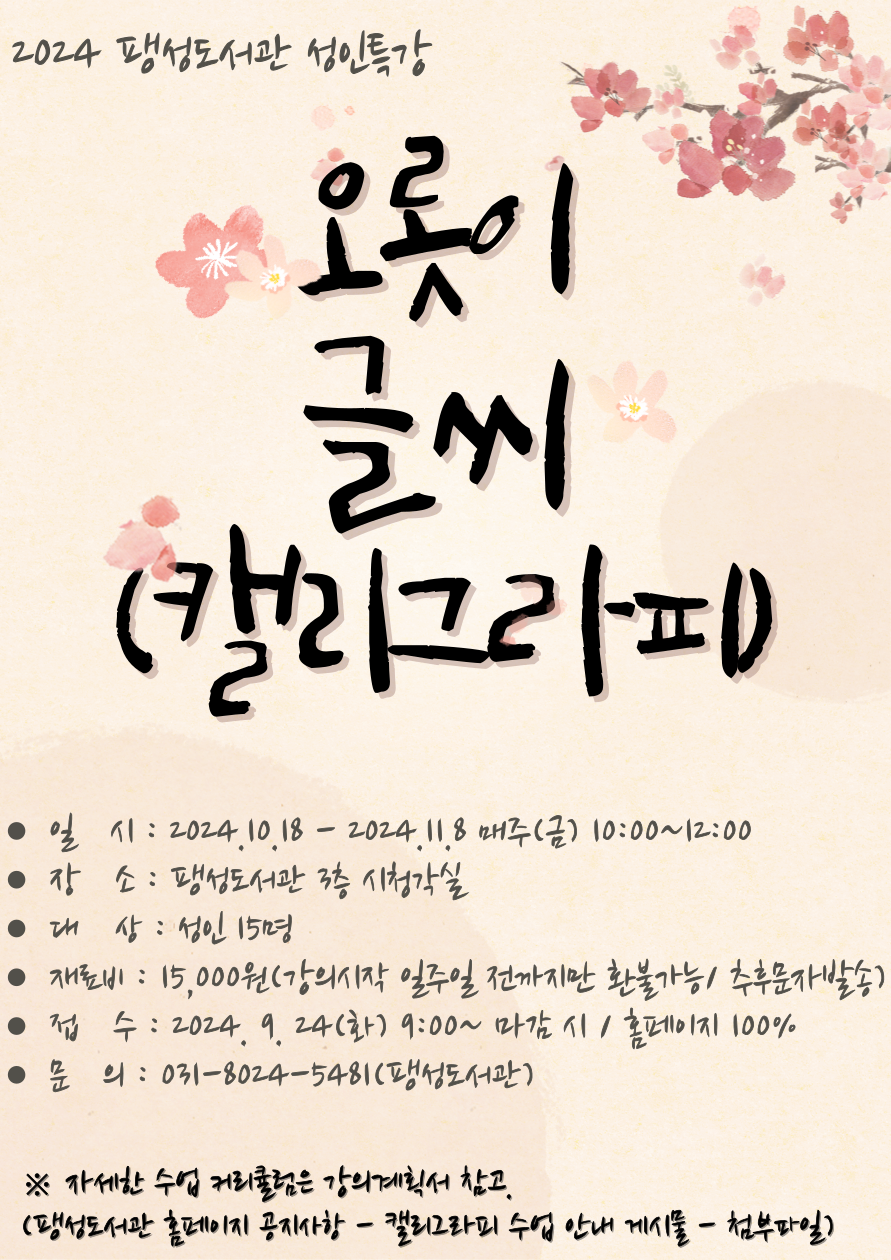 2024 팽성도서관 성인특강
오롯이
글씨
(캘리그라피)
● 일 시 : 2024.10.18 - 2024.11.8 매주(금) 10:00~12:00
● 장 소 : 팽성도서관 3층 시청각실
● 대 상 : 성인 15명
● 재료비 : 15,000원(강의시작 일주일 전까지만 환불가능/ 추후문자발송)
● 접 수 : 2024. 9. 24(화) 9:00~ 마감 시 / 홈페이지 100%
● 문 의 : 031-8024-5481(팽성도서관)
※ 자세한 수업 커리큘럼은 강의계획서 참고.
(팽성도서관 홈페이지 공지사항 - 캘리그라피 수업 안내 게시물 - 첨부파일)